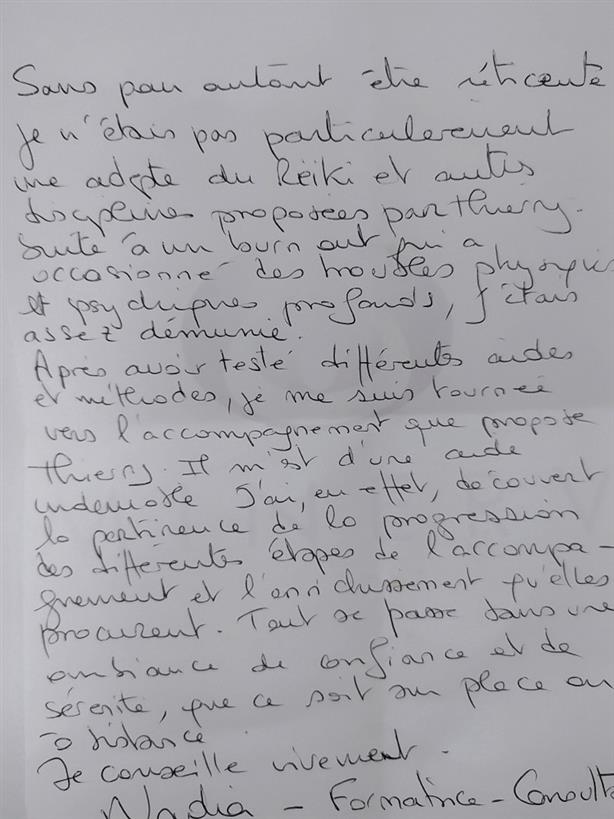 Sans pour autant être réticente
je n'étais pas particulerement
une adepte du Reiki et autres
disciplines proposées par Thierry.
Suite à un burn out qui a
occasionné des troubles physiques
et psychiques profonds, j'étais
assez démunie.
Après avoir testé différents aides
et méthodes, je me suis tournée
vers l'accompagnement que propose
Thierry. Il m'est d'une aide
indeniable J'ai, en effet, découvert
la pertinence de la progression
des différentes étapes de l'accompa-
gnement et l'enrichissement qu'elles
procurent. Tout se passe dans une
ambiance de confiance et de
sérénité, que ce soit sur place ou
à distance
Je conseille vivement.
Nadia - Formatrice - Consulta